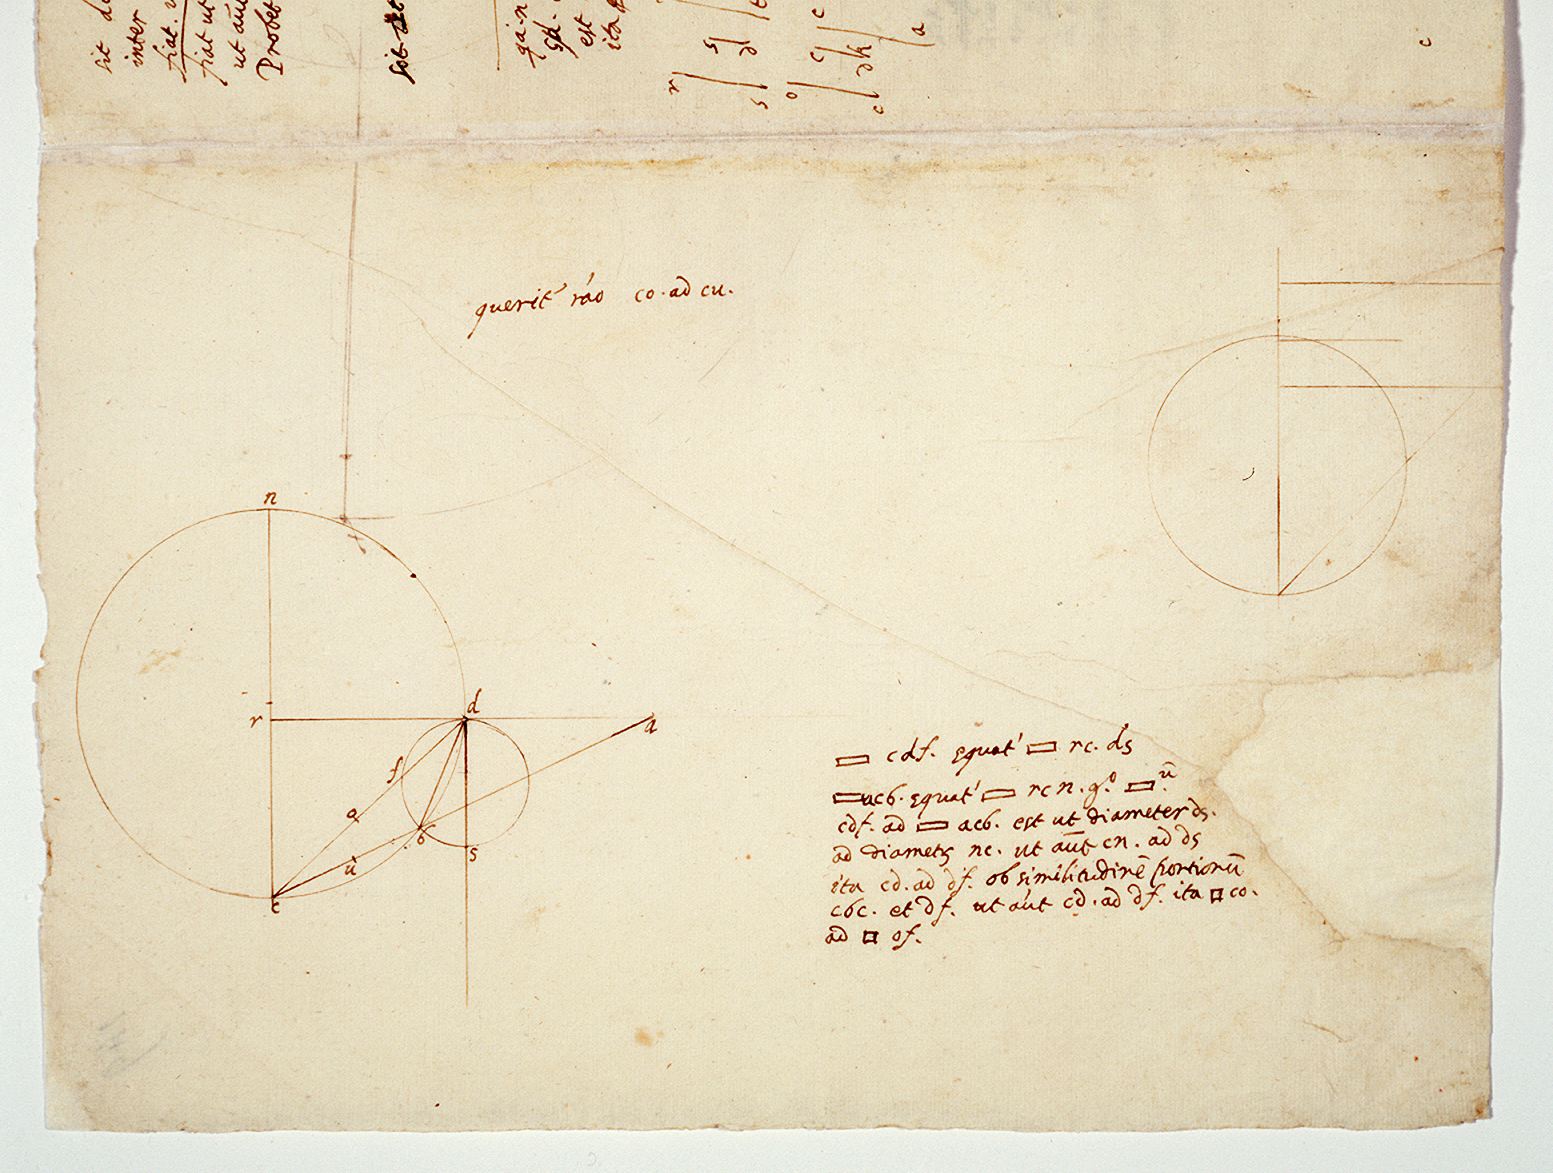 sit
inter
fiat
fiat ut
ut aut
Probet
sit
est
ita
r s
s d
o c
c dk
a
c
querit' rao co. ad cu.
n
d
r
a
f
o
b
s
u
c
▭ cdf. equat' ▭ rc. ds
▭ acb. equat' ▭ rcn. g.o ▭ ū
cdf. ad ▭ acb. est ut diameter ds.
ad diametr nc. ut aūt cn. ad ds
ita cd. ad df. ob similitudinē portionū
cbc. et df. ut aūt cd. ad df. ita □ co.
ad □ of.